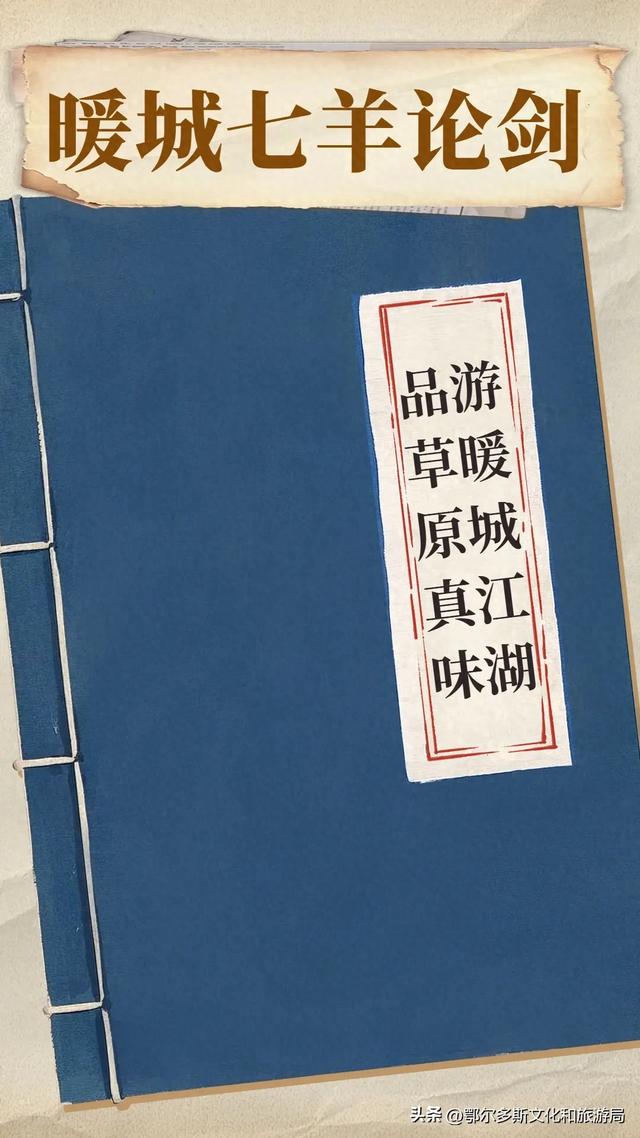 暖城七羊论剑
游暖城江湖
品草原真味
头条 @鄂尔多斯文化和旅游局